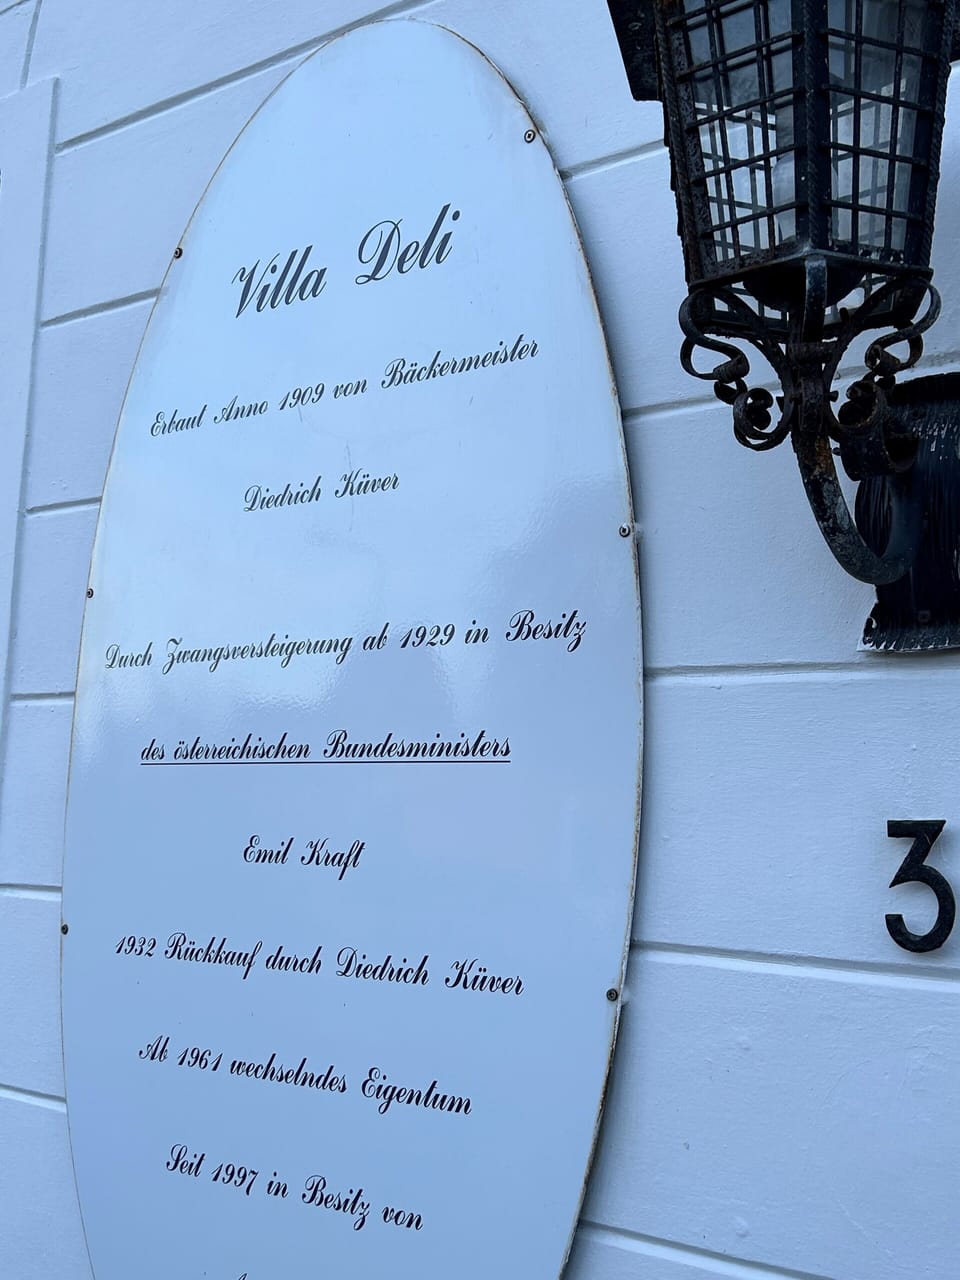 Villa Deli
Erbaut Anno 1909 von Bäckermeister
Diedrich Küver
Durch Zwangsversteigerung ab 1929 in Besitz
des österreichischen Bundesministers
Emil Kraft
1932 Rückkauf durch Diedrich Küver
Ab 1961 wechselndes Eigentum
Seit 1997 in Besitz von
3